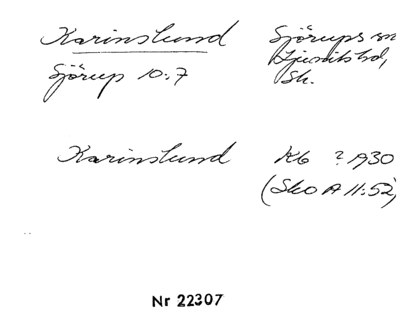 Karinslund Sjörups sn
Sjörup 10:7 Ljunits hd,
Sk.
Karinslund Kb ? 1930
(SkO A 11:52)
Nr 22307